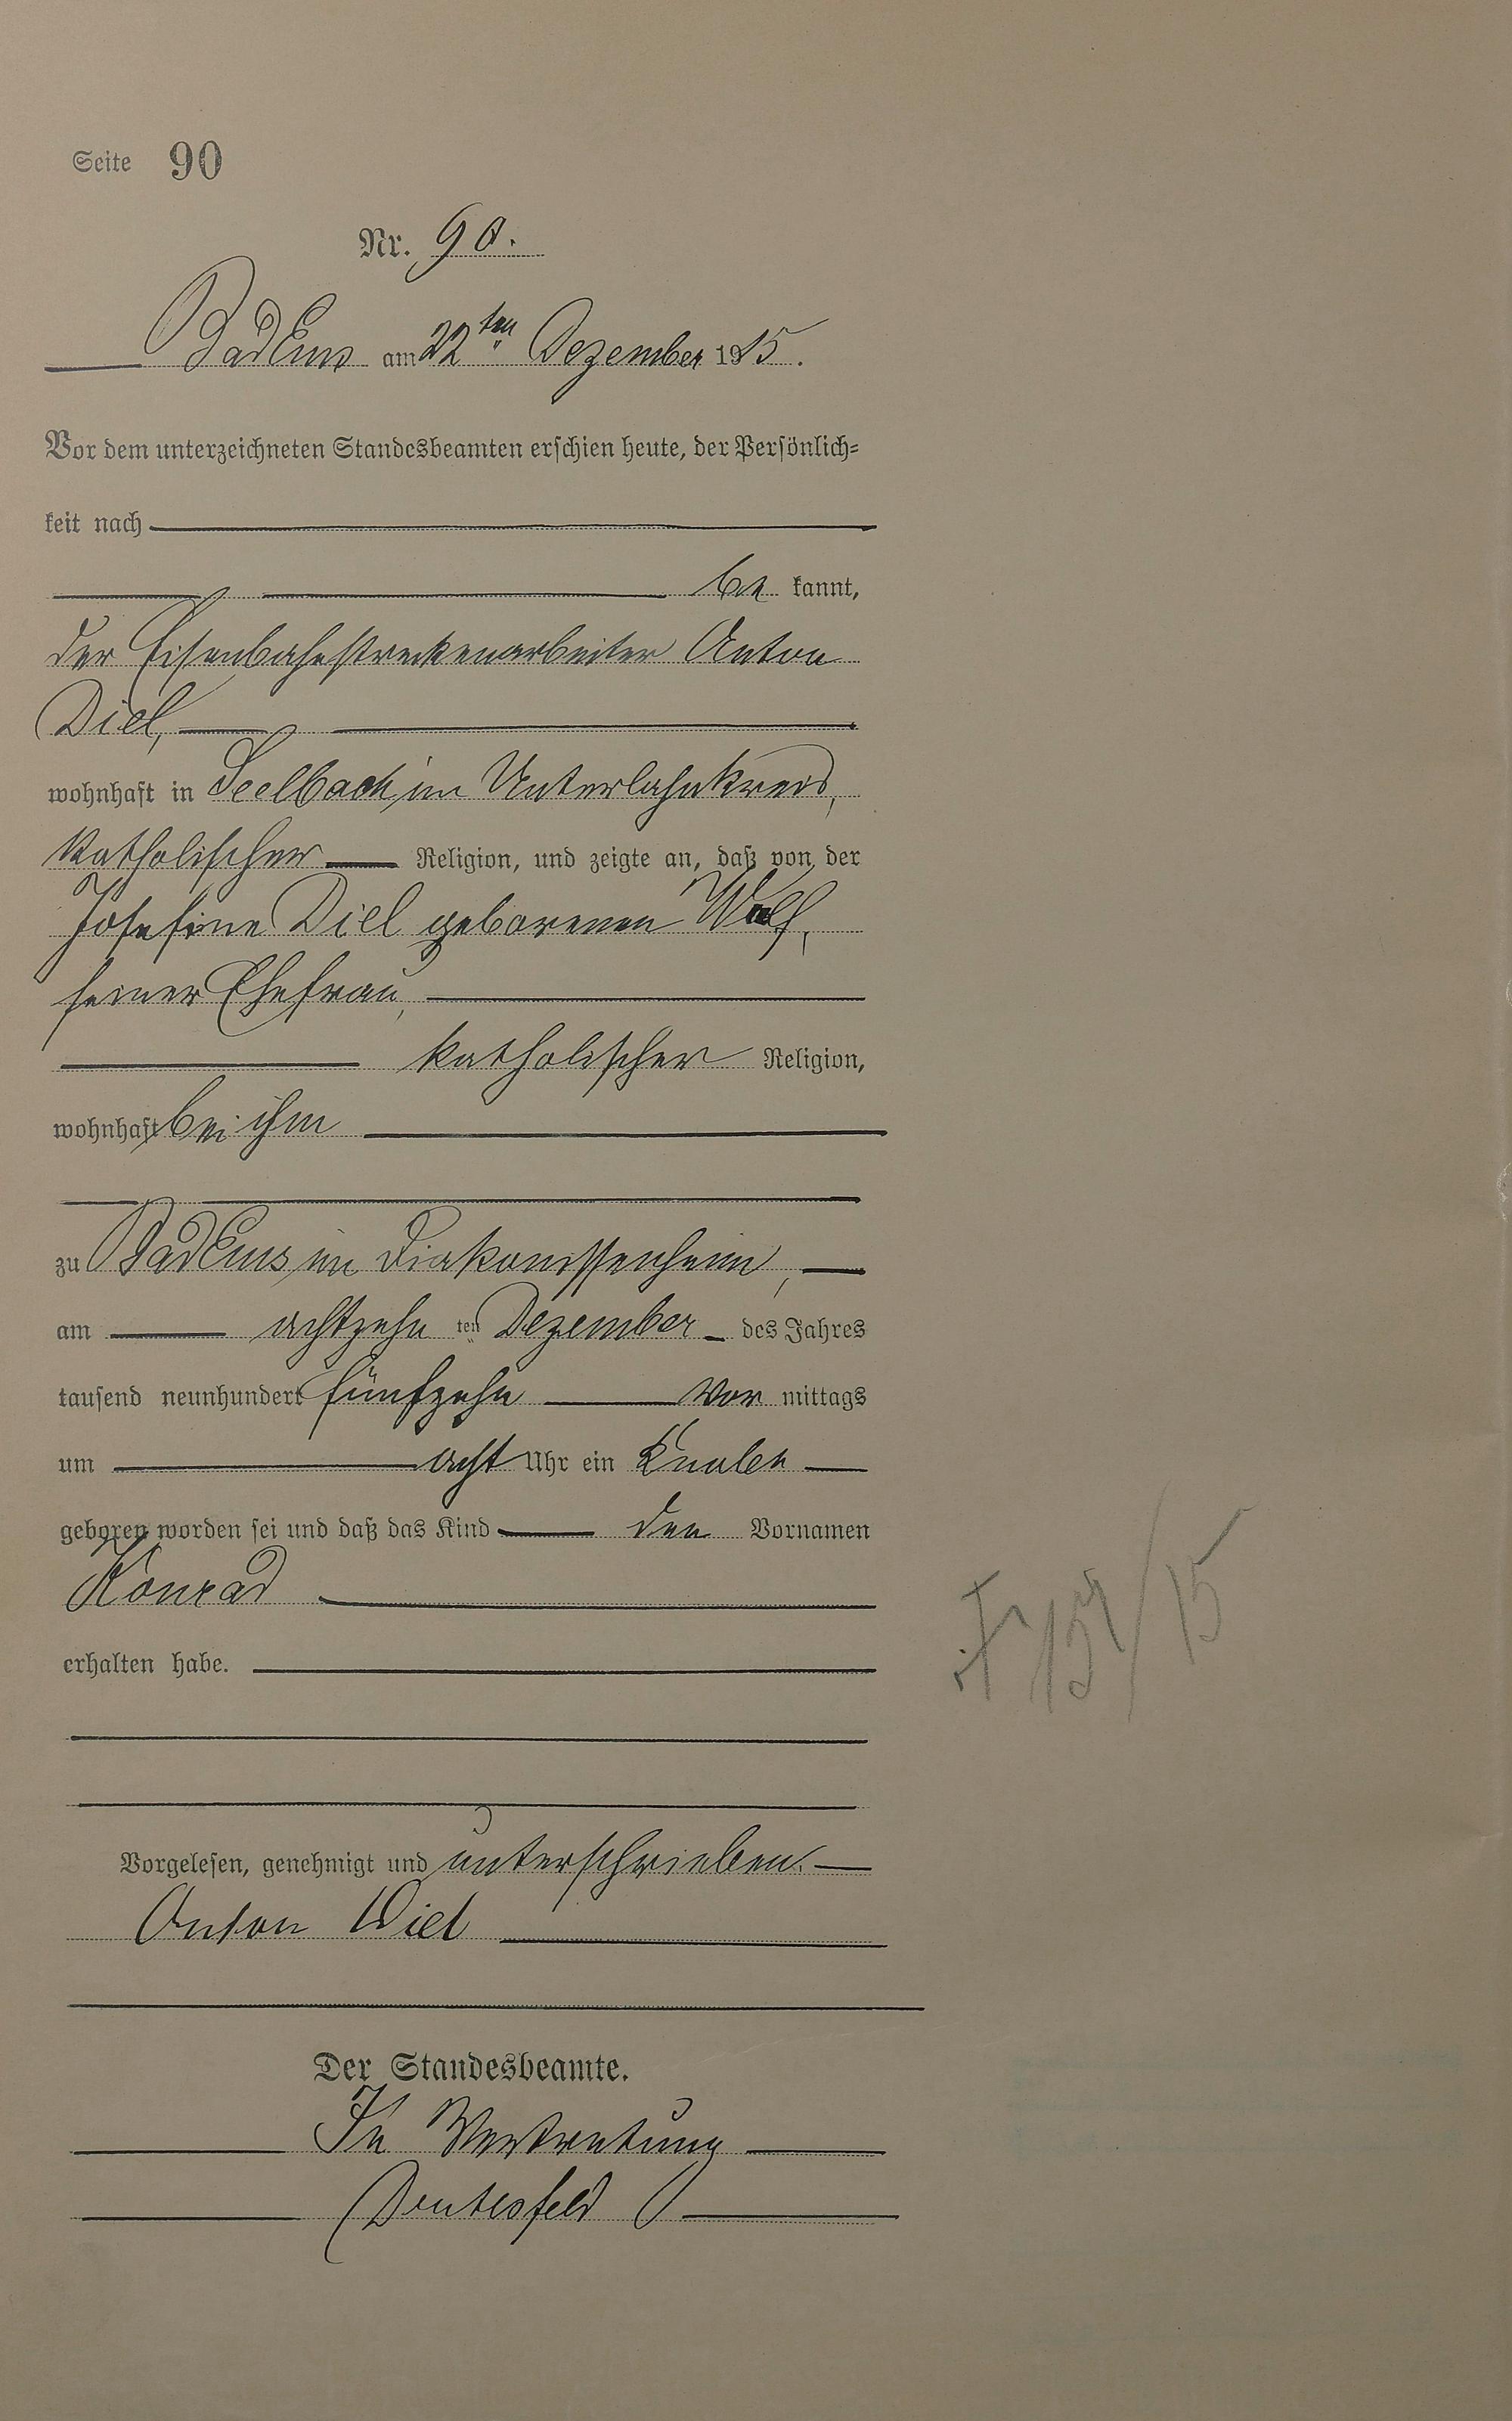 Seite 90
Nr. 90.
Bad Ems am 22ten Dezember 1915.
Vor dem unterzeichneten Standesbeamten erschien heute, der Persönlich-
keit nach
be kannt,
der Eisenbahnstreckenarbeiter Anton
Diel,
wohnhaft in Seelbach im Unterlahnkreis,
katholischer Religion, und zeigte an, daß von der
Josefine Diel geborenen Wolf,
seiner Ehefrau,
katholischer Religion,
wohnhaft bei ihm
zu Bad Ems im Diakonissenheim,
am achtzehn ten Dezember des Jahres
tausend neunhundert fünfzehn vor mittags
um acht Uhr ein Knabe
geboren worden sei und daß das Kind den Vornamen
Konrad
erhalten habe.
Vorgelesen, genehmigt und unterschrieben.
Anton Diel
Der Standesbeamte.
In Vertretung